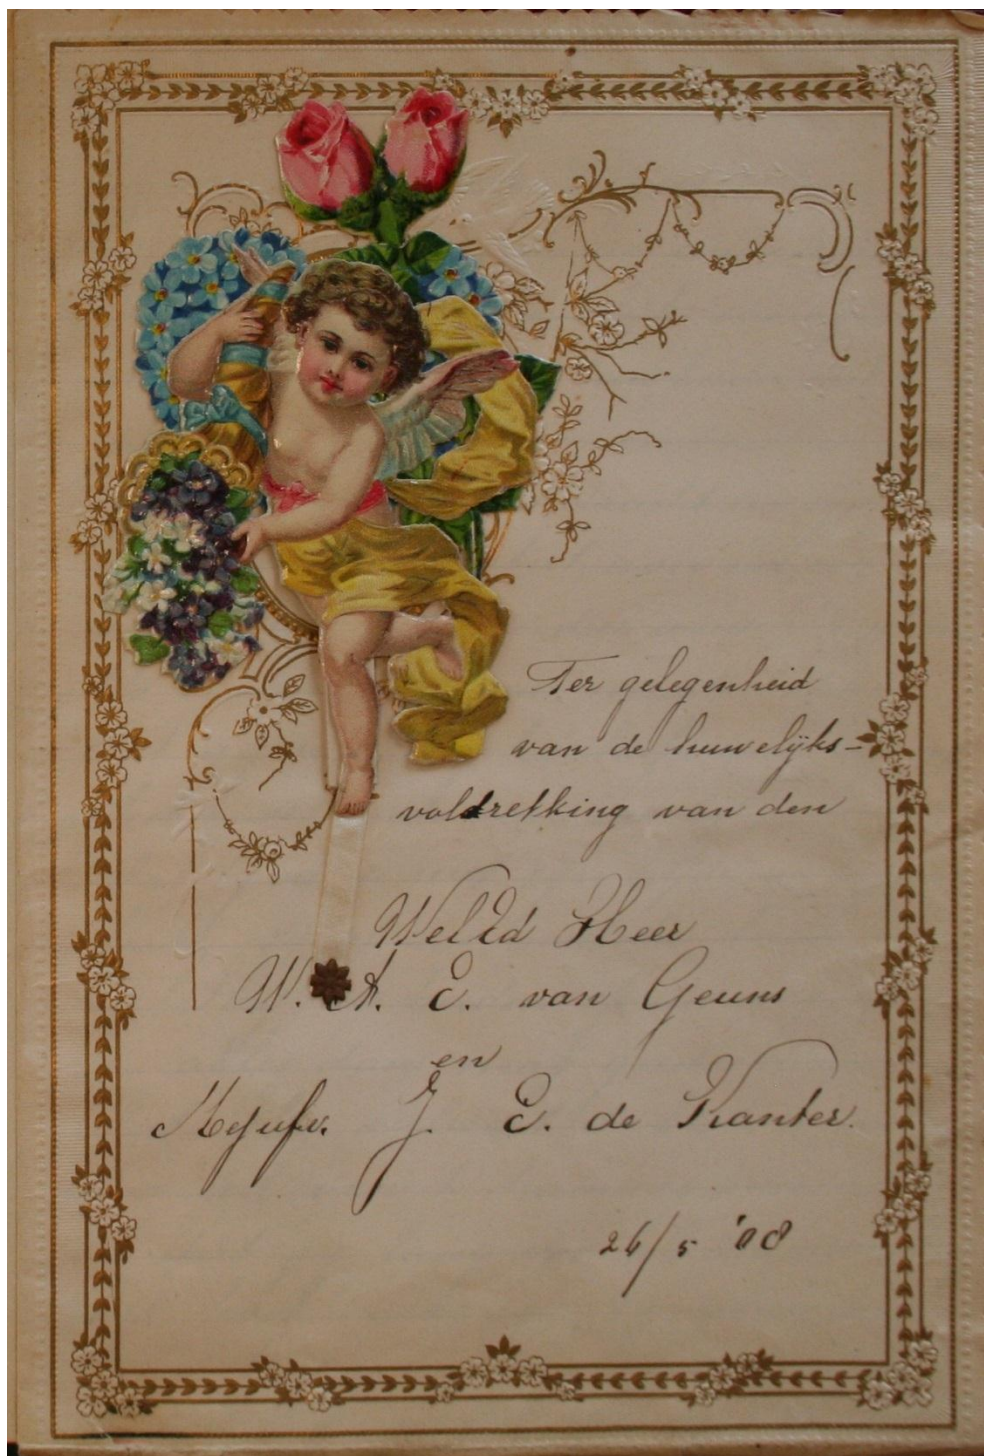 Ter gelegenheid
van de huwelijks-
voldrekking van den
WelEd Heer
W. A. E. van Geuns
en
Mejufr. J. E. de Kanter.
26/5 '08